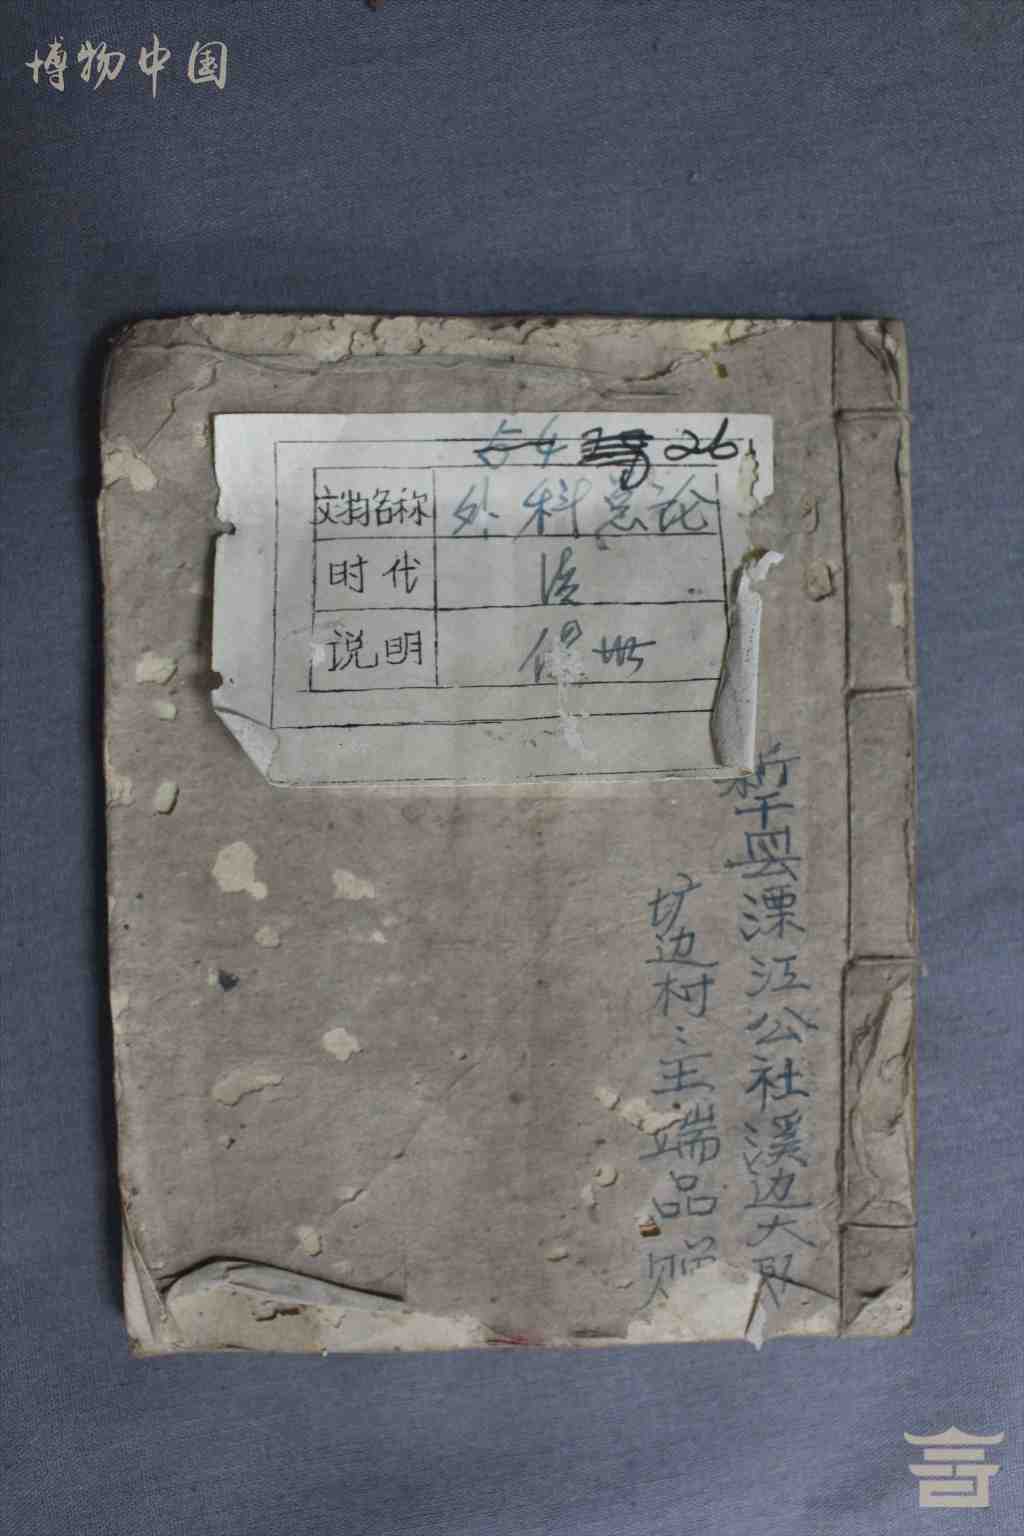 博物中国
54 26
文物名称 外科总论
时代 清
说明 保世
新干县溧江公社溪边大队
圹边村:王端品赠